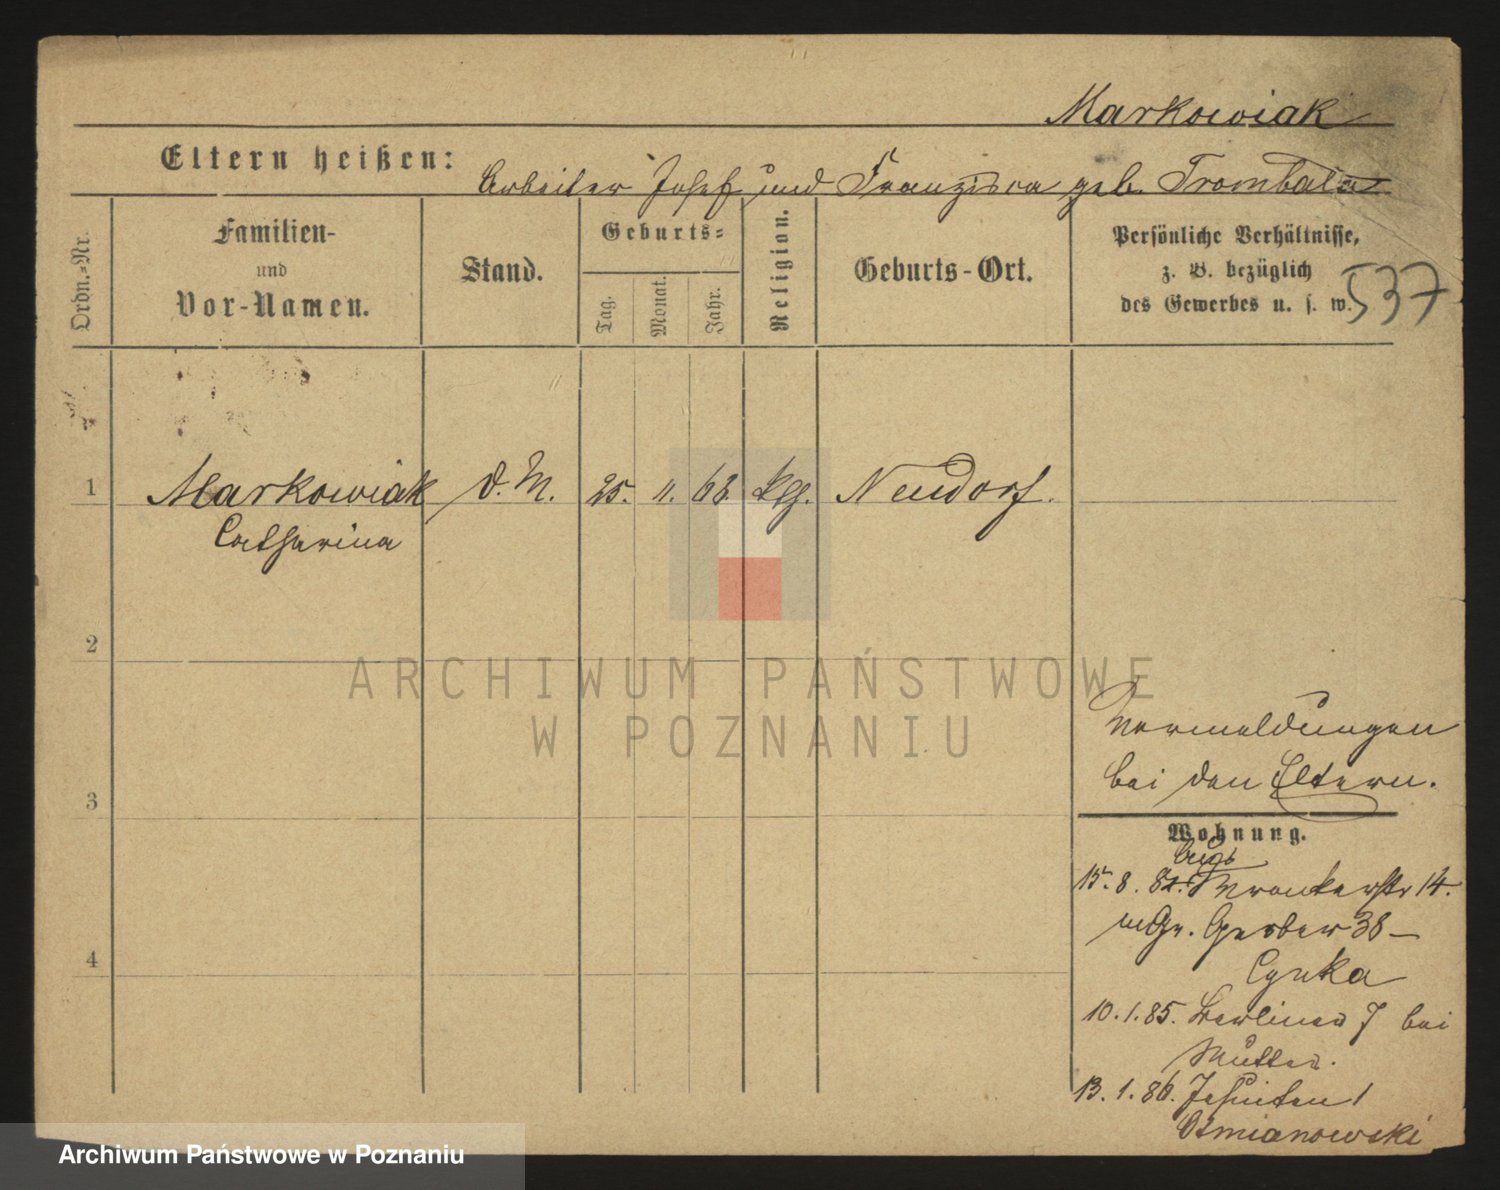 Markowiak
Eltern heißen: Arbeiter Josef und Franziska geb. Trombala
Ordn.-Nr.
Familien-
und
Vor-Namen.
Stand.
Geburts-
Tag.
Monat.
Jahr.
Religion.
Geburts-Ort.
Persönliche Verhältnisse,
z. B. bezüglich
des Gewerbes u. s. w.
537
1
Markowiak d. M. 25. 11. 68 kth. Neudorf.
Catharina
2
3
4
Vermeldungen
bei den Eltern.
Wohnung.
15. 8. 82. Wronkerstr 14.
Gr. Gerber 38 –
Cynka
10. 1. 85. Berliner 7 bei
Mutter.
13. 1. 86. Jesuiten 1
Osmianowski
ARCHIWUM PAŃSTWOWE
W POZNANIU
Archiwum Państwowe w Poznaniu